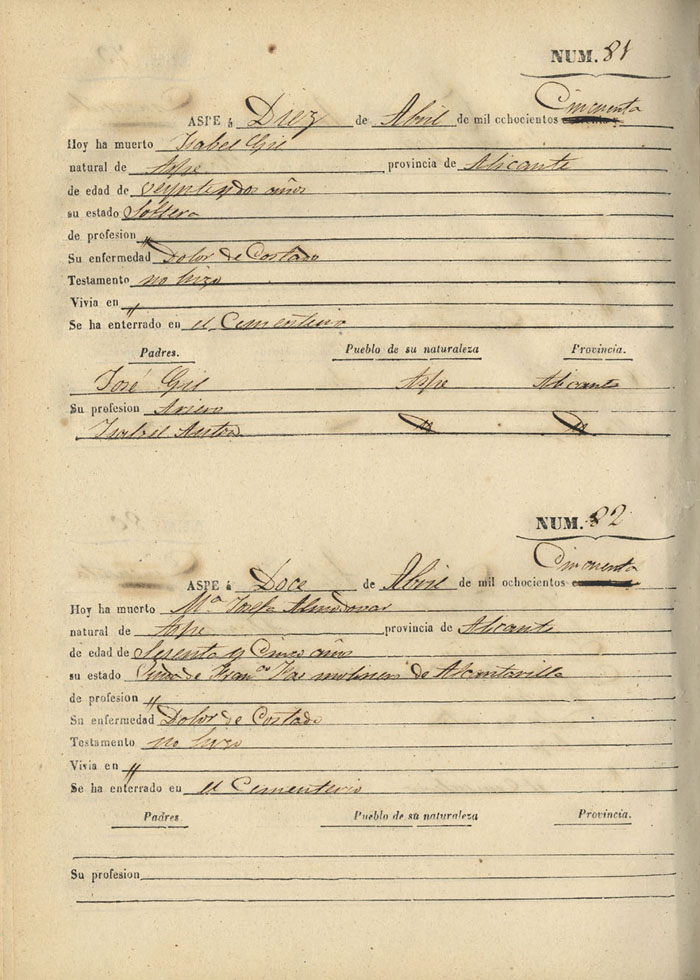 NUM. 81
Cincuenta
ASPE á Diez de Abril de mil ochocientos
Hoy ha muerto Isabel Gil
natural de Aspe provincia de Alicante
de edad de veynte y dos años
su estado Soltera
de profesion "
Su enfermedad Dolor de Costado
Testamento no hizo
Vivia en "
Se ha enterrado en el Cementerio
Padres. Pueblo de su naturaleza Provincia.
José Gil Aspe Alicante
Su profesion Ariero
Isabel
NUM. 82
Cincuenta
ASPE á Doce de Abril de mil ochocientos
Hoy ha muerto Mª Josefa Almodovar
natural de Aspe provincia de Alicante
de edad de Sesenta y Cinco años
su estado de Franco molinero de Alcantarilla
de profesion "
Su enfermedad Dolor de Costado
Testamento no hizo
Vivia en "
Se ha enterrado en el Cementerio
Padres Pueblo de su naturaleza Provincia.
Su profesion